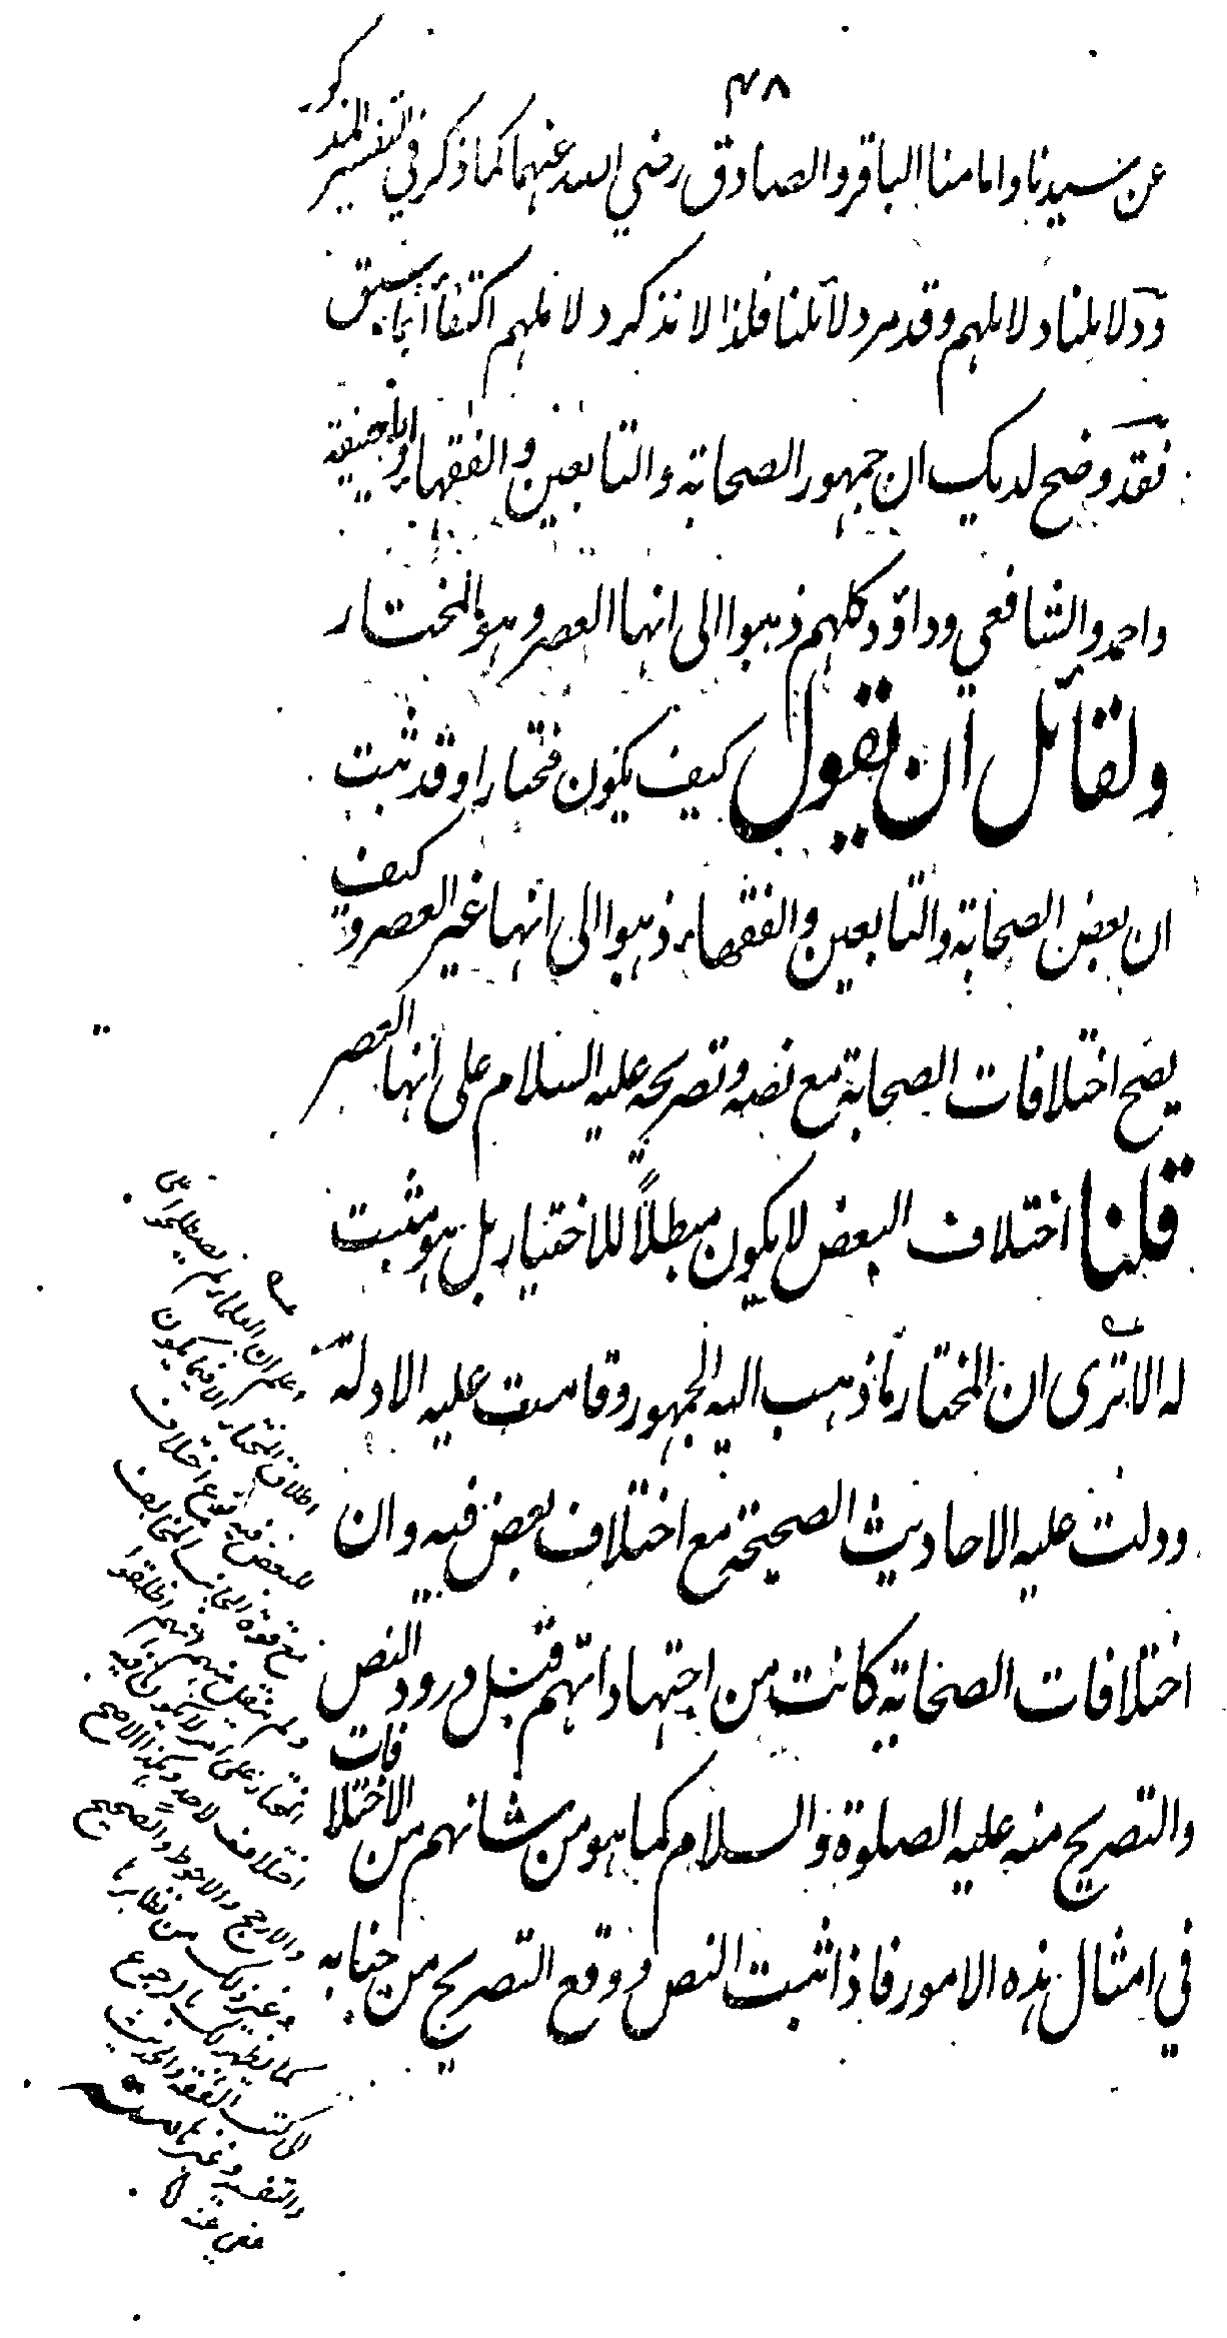 ٤٨
عن سيدنا وامامنا الباقر والصادق رضي الله عنهما كما ذكر في التفسير المذكور
ودلايلنا دلايلهم وقد مر دلائلنا فلذا لا نذكر دلايلهم اكتفاء بما سبق
فقد وضح لديك ان جمهور الصحابة والتابعين والفقهاء وابا حنيفة
واحمد والشافعي وداؤد كلهم ذهبوا الى انها العصر وهو المختار
ولقائل ان يقول كيف يكون مختارا وقد ثبت
ان بعض الصحابة والتابعين والفقهاء ذهبوا الى انها غير العصر وكيف
يصح اختلافات الصحابة مع نصه وتصريحه عليه السلام على انها العصر
قلنا اختلاف البعض لا يكون مبطلاً للاختيار بل هو مثبت
له الا ترى ان المختار ما ذهب اليه الجمهور وقامت عليه الادلة
ودلت عليه الاحاديث الصحيحة مع اختلاف بعض فيه وان
اختلافات الصحابة كانت من اجتهاداتهم قبل ورود النص
والتصريح منه عليه الصلوة والسلام كما هو من شانهم من الاختلافات
في امثال هذه الامور فاذا ثبت النص ووقع التصريح من جنابه
واعلم ان العلماء لم يصطلحوا على
اطلاق المختار الا فيما يكون
للبعض فيه نوع اختلاف
مع قوة الجانب المخالف
ولم ينقل منهم انهم اطلقوا
المختار على امر لا يكون فيه
اختلاف لاحد وهكذا الاصح
والارجح والاحوط والصحيح
وغير ذلك من نظايرها
كما يظهر لك بالرجوع
الى كتب الفقه والحديث
والتفسير وغيرها منه
عفي عنه